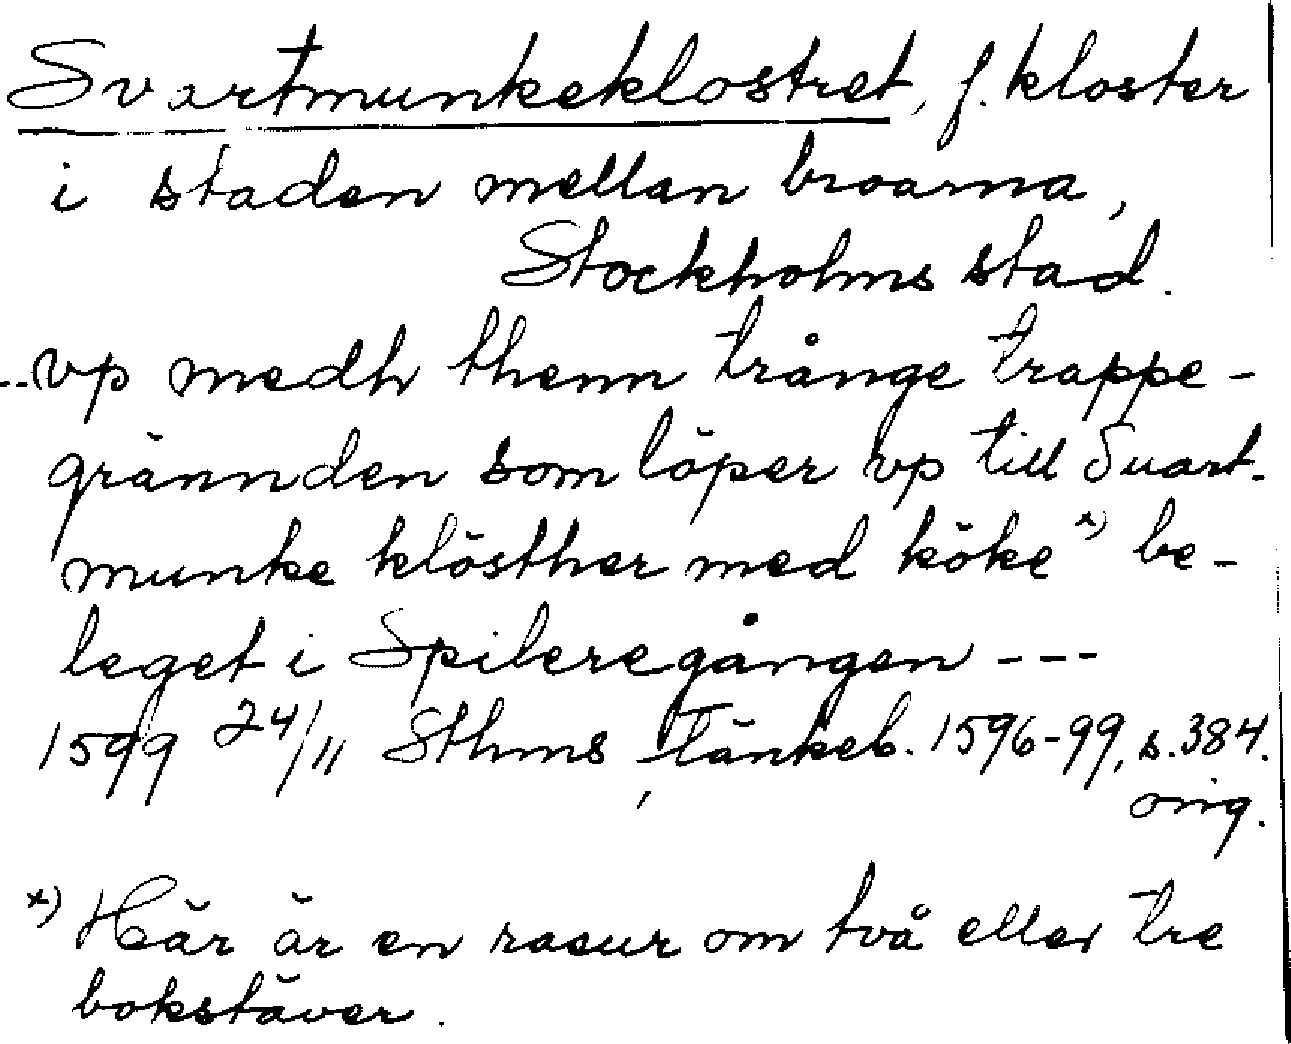 Svartmunkeklostret, f. kloster
i staden mellan broarna,
Stockholms stad.
--vp medh thenn trånge trappe-
grännden som löper vp till Suart-
munke klösther med köke x) be-
leget i Spileregången ---
1599 24/11 Sthms Tänkeb. 1596-99, s.384.
orig.
x) Här är en rasur om två eller tre
bokstäver.